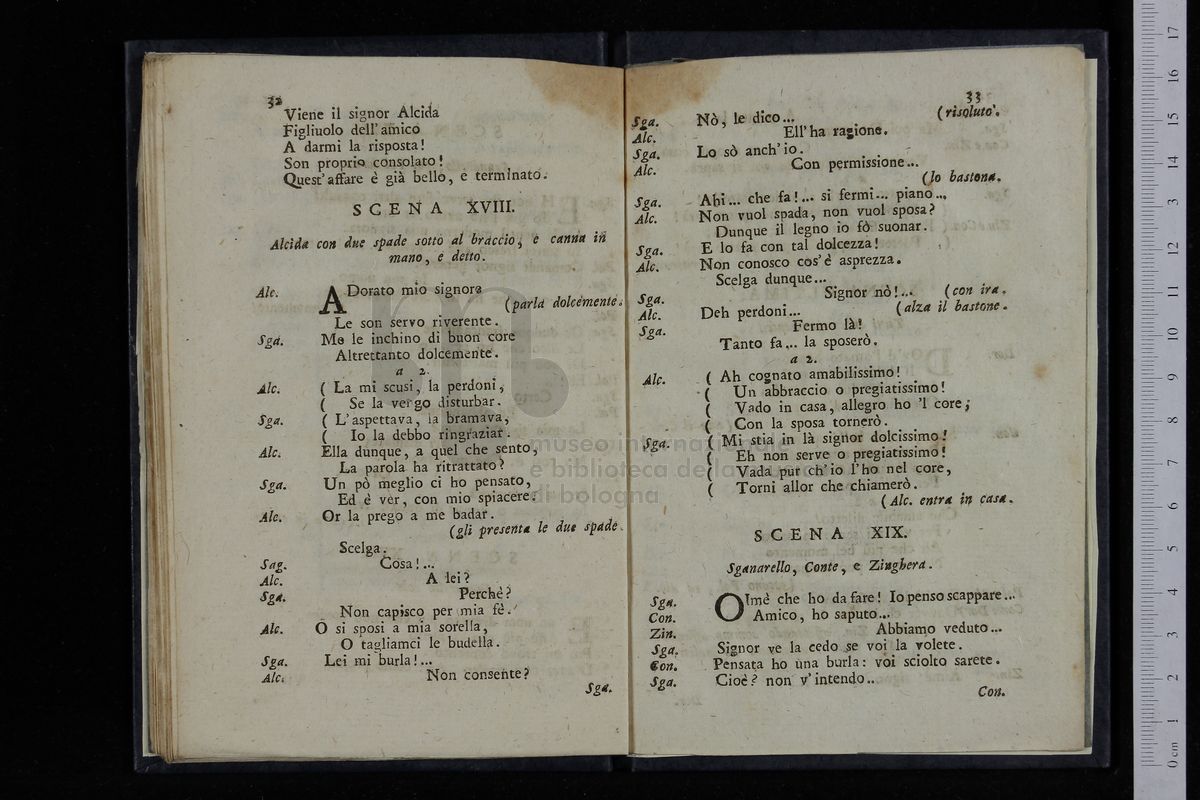 32
Viene il signor Alcida
Figliuolo dell' amico
A darmi la risposta!
Son proprio consolato!
Quest' affare è già bello, e terminato.
SCENA XVIII.
Alcida con due spade sotto al braccio, e canna in
mano, e detto.
Alc. ADorato mio signore
(parla dolcemente.
Le son servo riverente.
Sga. Me le inchino di buon core
Altrettanto dolcemente.
a 2.
Alc. ( La mi scusi, la perdoni,
( Se la vengo disturbar.
Sga. ( L' aspettava, la bramava,
( Io la debbo ringraziar.
Alc. Ella dunque, a quel che sento,
La parola ha ritrattato?
Sga. Un pò meglio ci ho pensato,
Ed è ver, con mio spiacere.
Alc. Or la prego a me badar.
(gli presenta le due spade.
Scelga.
Sag. Cosa!...
Alc. A lei?
Sga. Perchè?
Non capisco per mia fè.
Alc. O si sposi a mia sorella,
O tagliamci le budella.
Sga. Lei mi burla!...
Alc. Non consente?
Sga.
33
Sga. Nò, le dico... (risoluto.
Alc. Ell' ha ragione.
Sga. Lo sò anch' io.
Alc. Con permissione...
(lo bastona.
Sga. Ahi... che fa!... si fermi... piano...
Alc. Non vuol spada, non vuol sposa?
Dunque il legno io fò suonar.
Sga. E lo fa con tal dolcezza!
Alc. Non conosco cos' è asprezza.
Scelga dunque...
Sga. Signor nò!... (con ira.
Alc. Deh perdoni... (alza il bastone.
Sga. Fermo là!
Tanto fa... la sposerò.
a 2.
Alc. ( Ah cognato amabilissimo!
( Un abbraccio o pregiatissimo!
( Vado in casa, allegro ho 'l core;
( Con la sposa tornerò.
Sga. ( Mi stia in là signor dolcissimo!
( Eh non serve o pregiatissimo!
( Vada pur ch' io l' ho nel core,
( Torni allor che chiamerò.
(Alc. entra in casa.
SCENA XIX.
Sganarello, Conte, e Zinghera.
Sga. OImè che ho da fare! Io penso scappare...
Con. Amico, ho saputo...
Zin. Abbiamo veduto...
Sga. Signor ve la cedo se voi la volete.
Con. Pensata ho una burla: voi sciolto sarete.
Sga. Cioè? non v' intendo..
Con.
museo internazionale
e biblioteca della musica
di bologna
0 cm 1 2 3 4 5 6 7 8 9 10 11 12 13 14 15 16 17